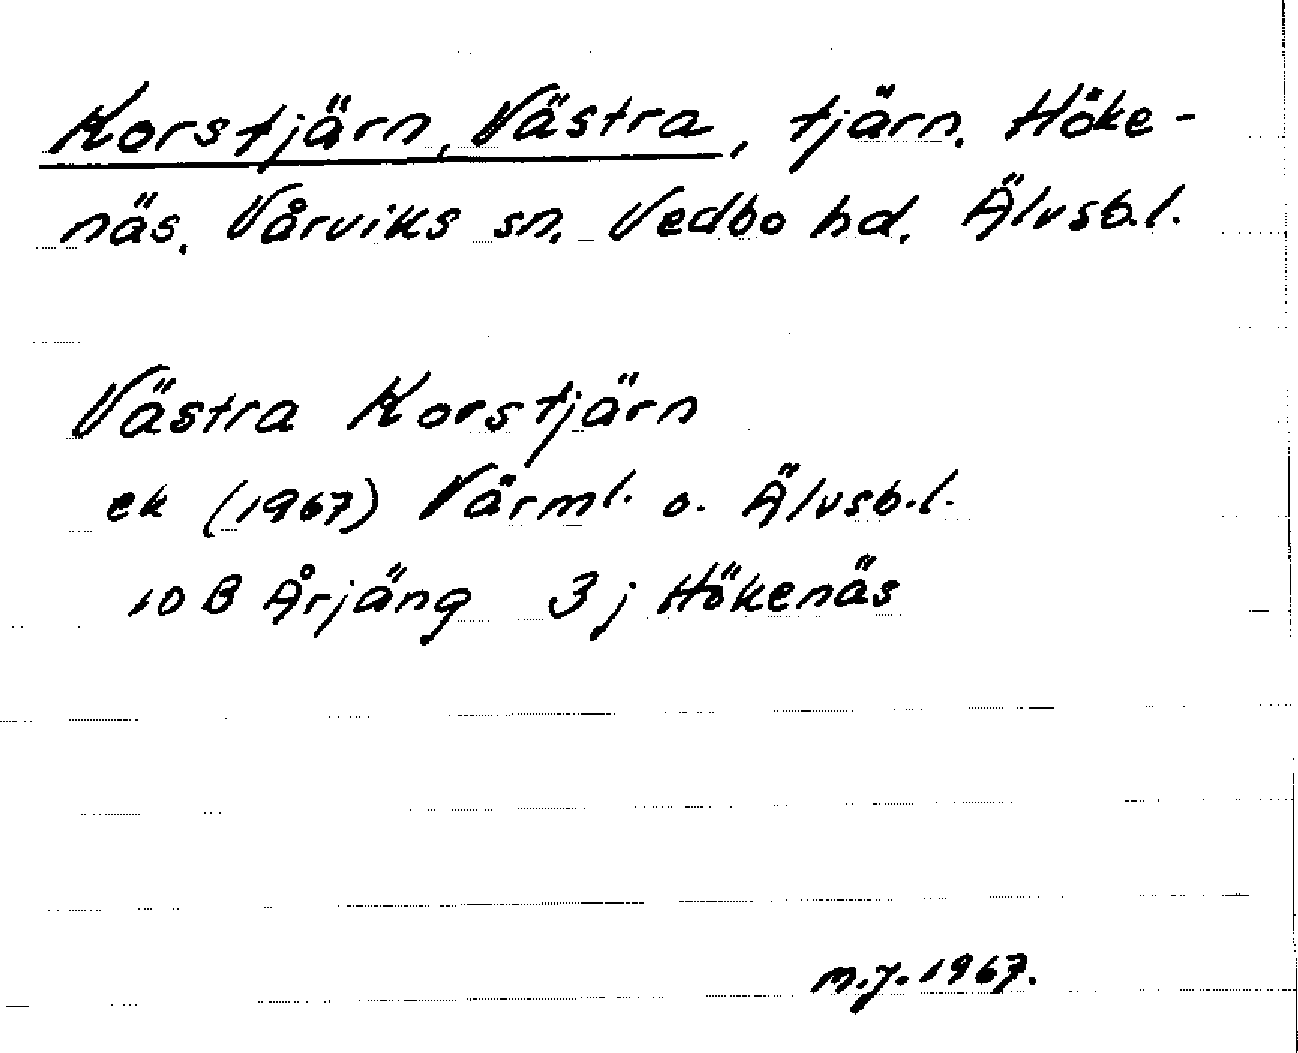 Korstjärn, Västra, tjärn. Höke-
näs. Vårviks sn. Vedbo hd. Älvsb.l.
Västra Korstjärn
ek (1967) Värml. o. Älvsb.l.
10 B Årjäng 3 j Hökenäs
m.j. 1967.